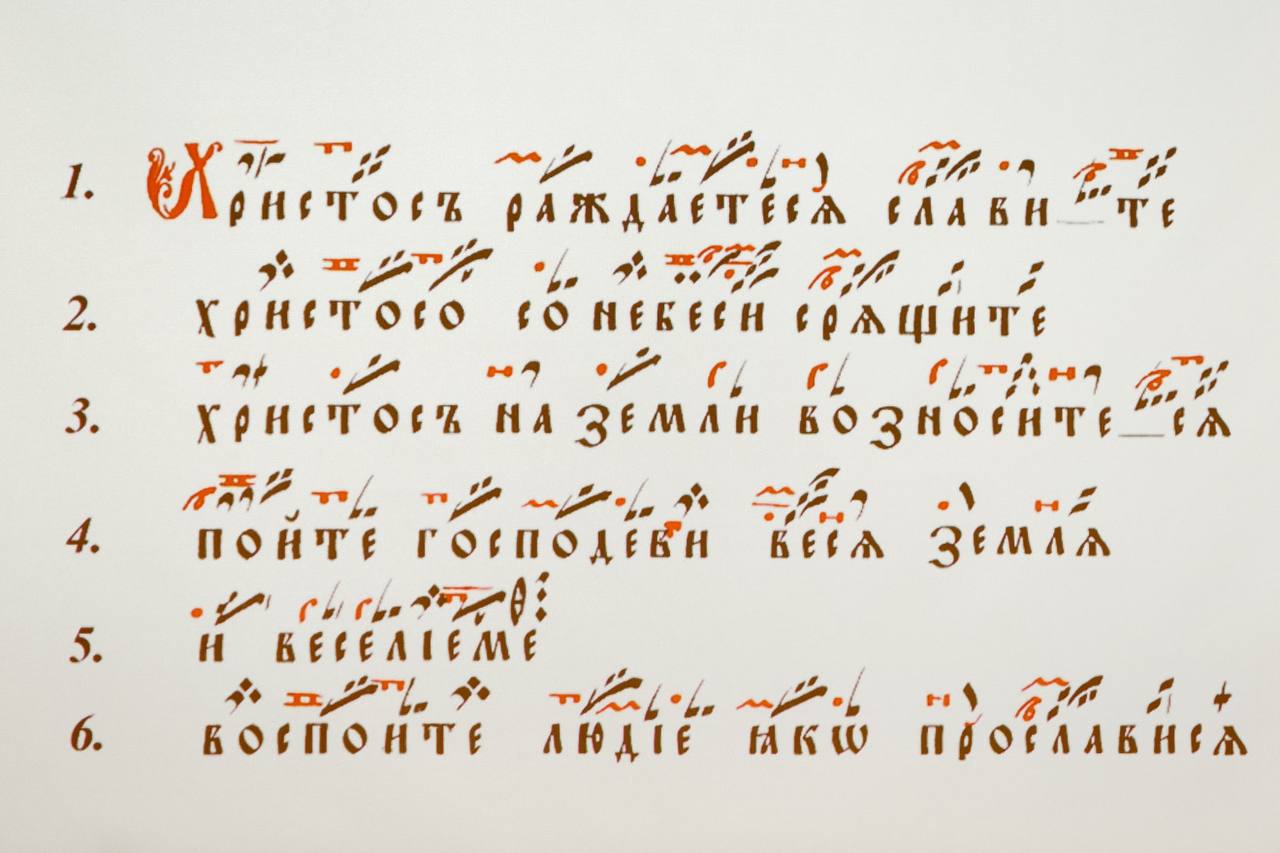 1. Христосъ раждаетесѧ слави те
2. христосо со небеси срѧщите
3. христосъ на земли возносите сѧ
4. пойте господеви весѧ землѧ
5. и веселіеме
6. воспоите людіе ꙗкѡ прослависѧ